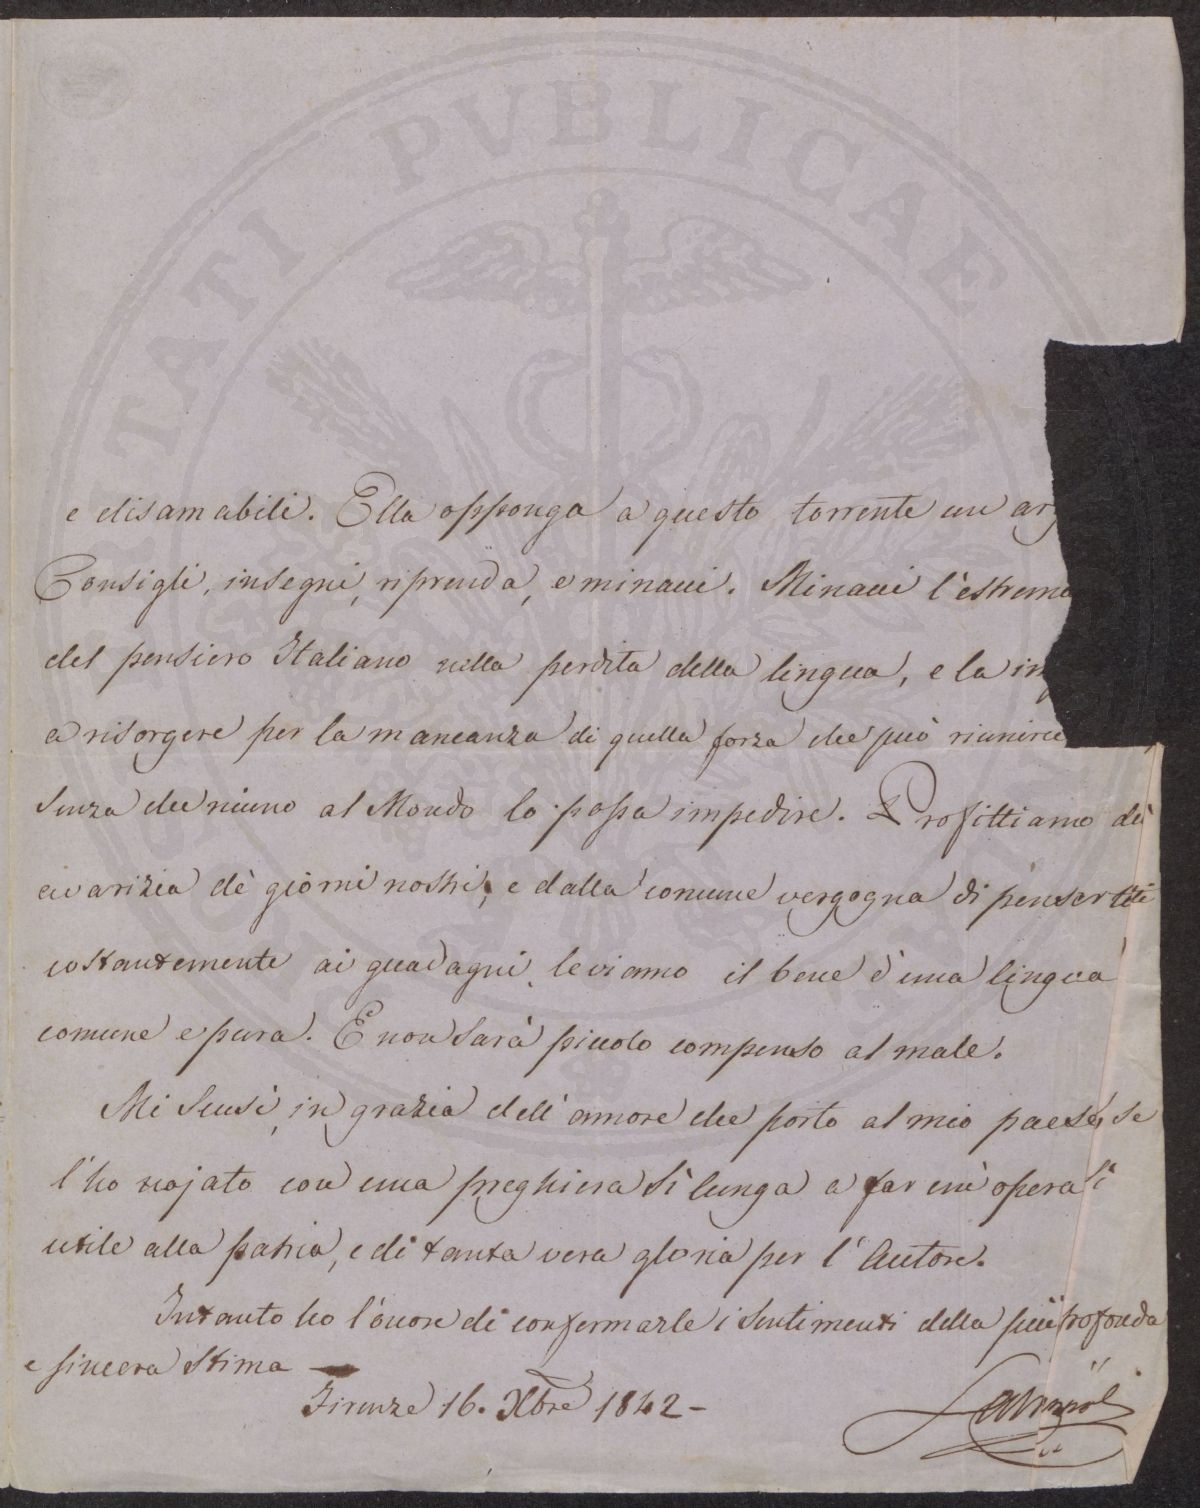 TATI PVBLICAE
e disamabili. Ella opponga a questo torrente un arg
Consigli, insegni, riprenda, e minacci. Minacci l'estrem
del pensiero Italiano nella perdita della lingua, e la im
a risorgere per la mancanza di quella forza che può riunirci
senza che niuno al Mondo lo possa impedire. Profittiamo di
avarizia de' giorni nostri, e dalla comune vergogna di pensar tutti
costantemente ai guadagni, leviamo il bene d'una lingua
comune e pura. E non sarà piccolo compenso al male.
Mi scusi, in grazia dell'amore che porto al mio paese, se
l'ho nojato con una preghiera sì lunga a far un'opera sì
utile alla patria, e di tanta vera gloria per l'Autore.
Intanto ho l'onore di confermarle i sentimenti della più profonda
e sincera stima
Firenze 16. Xbre 1842 -